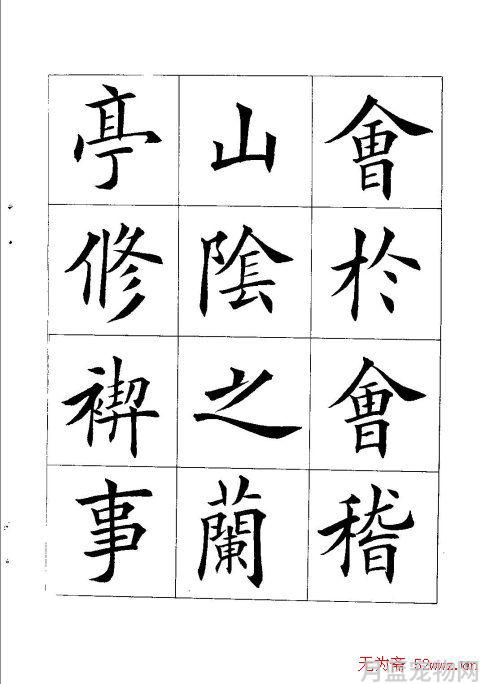 會於會稽
山陰之蘭
亭修禊事
无为斋 52wwz.cn
月蓝宠物网